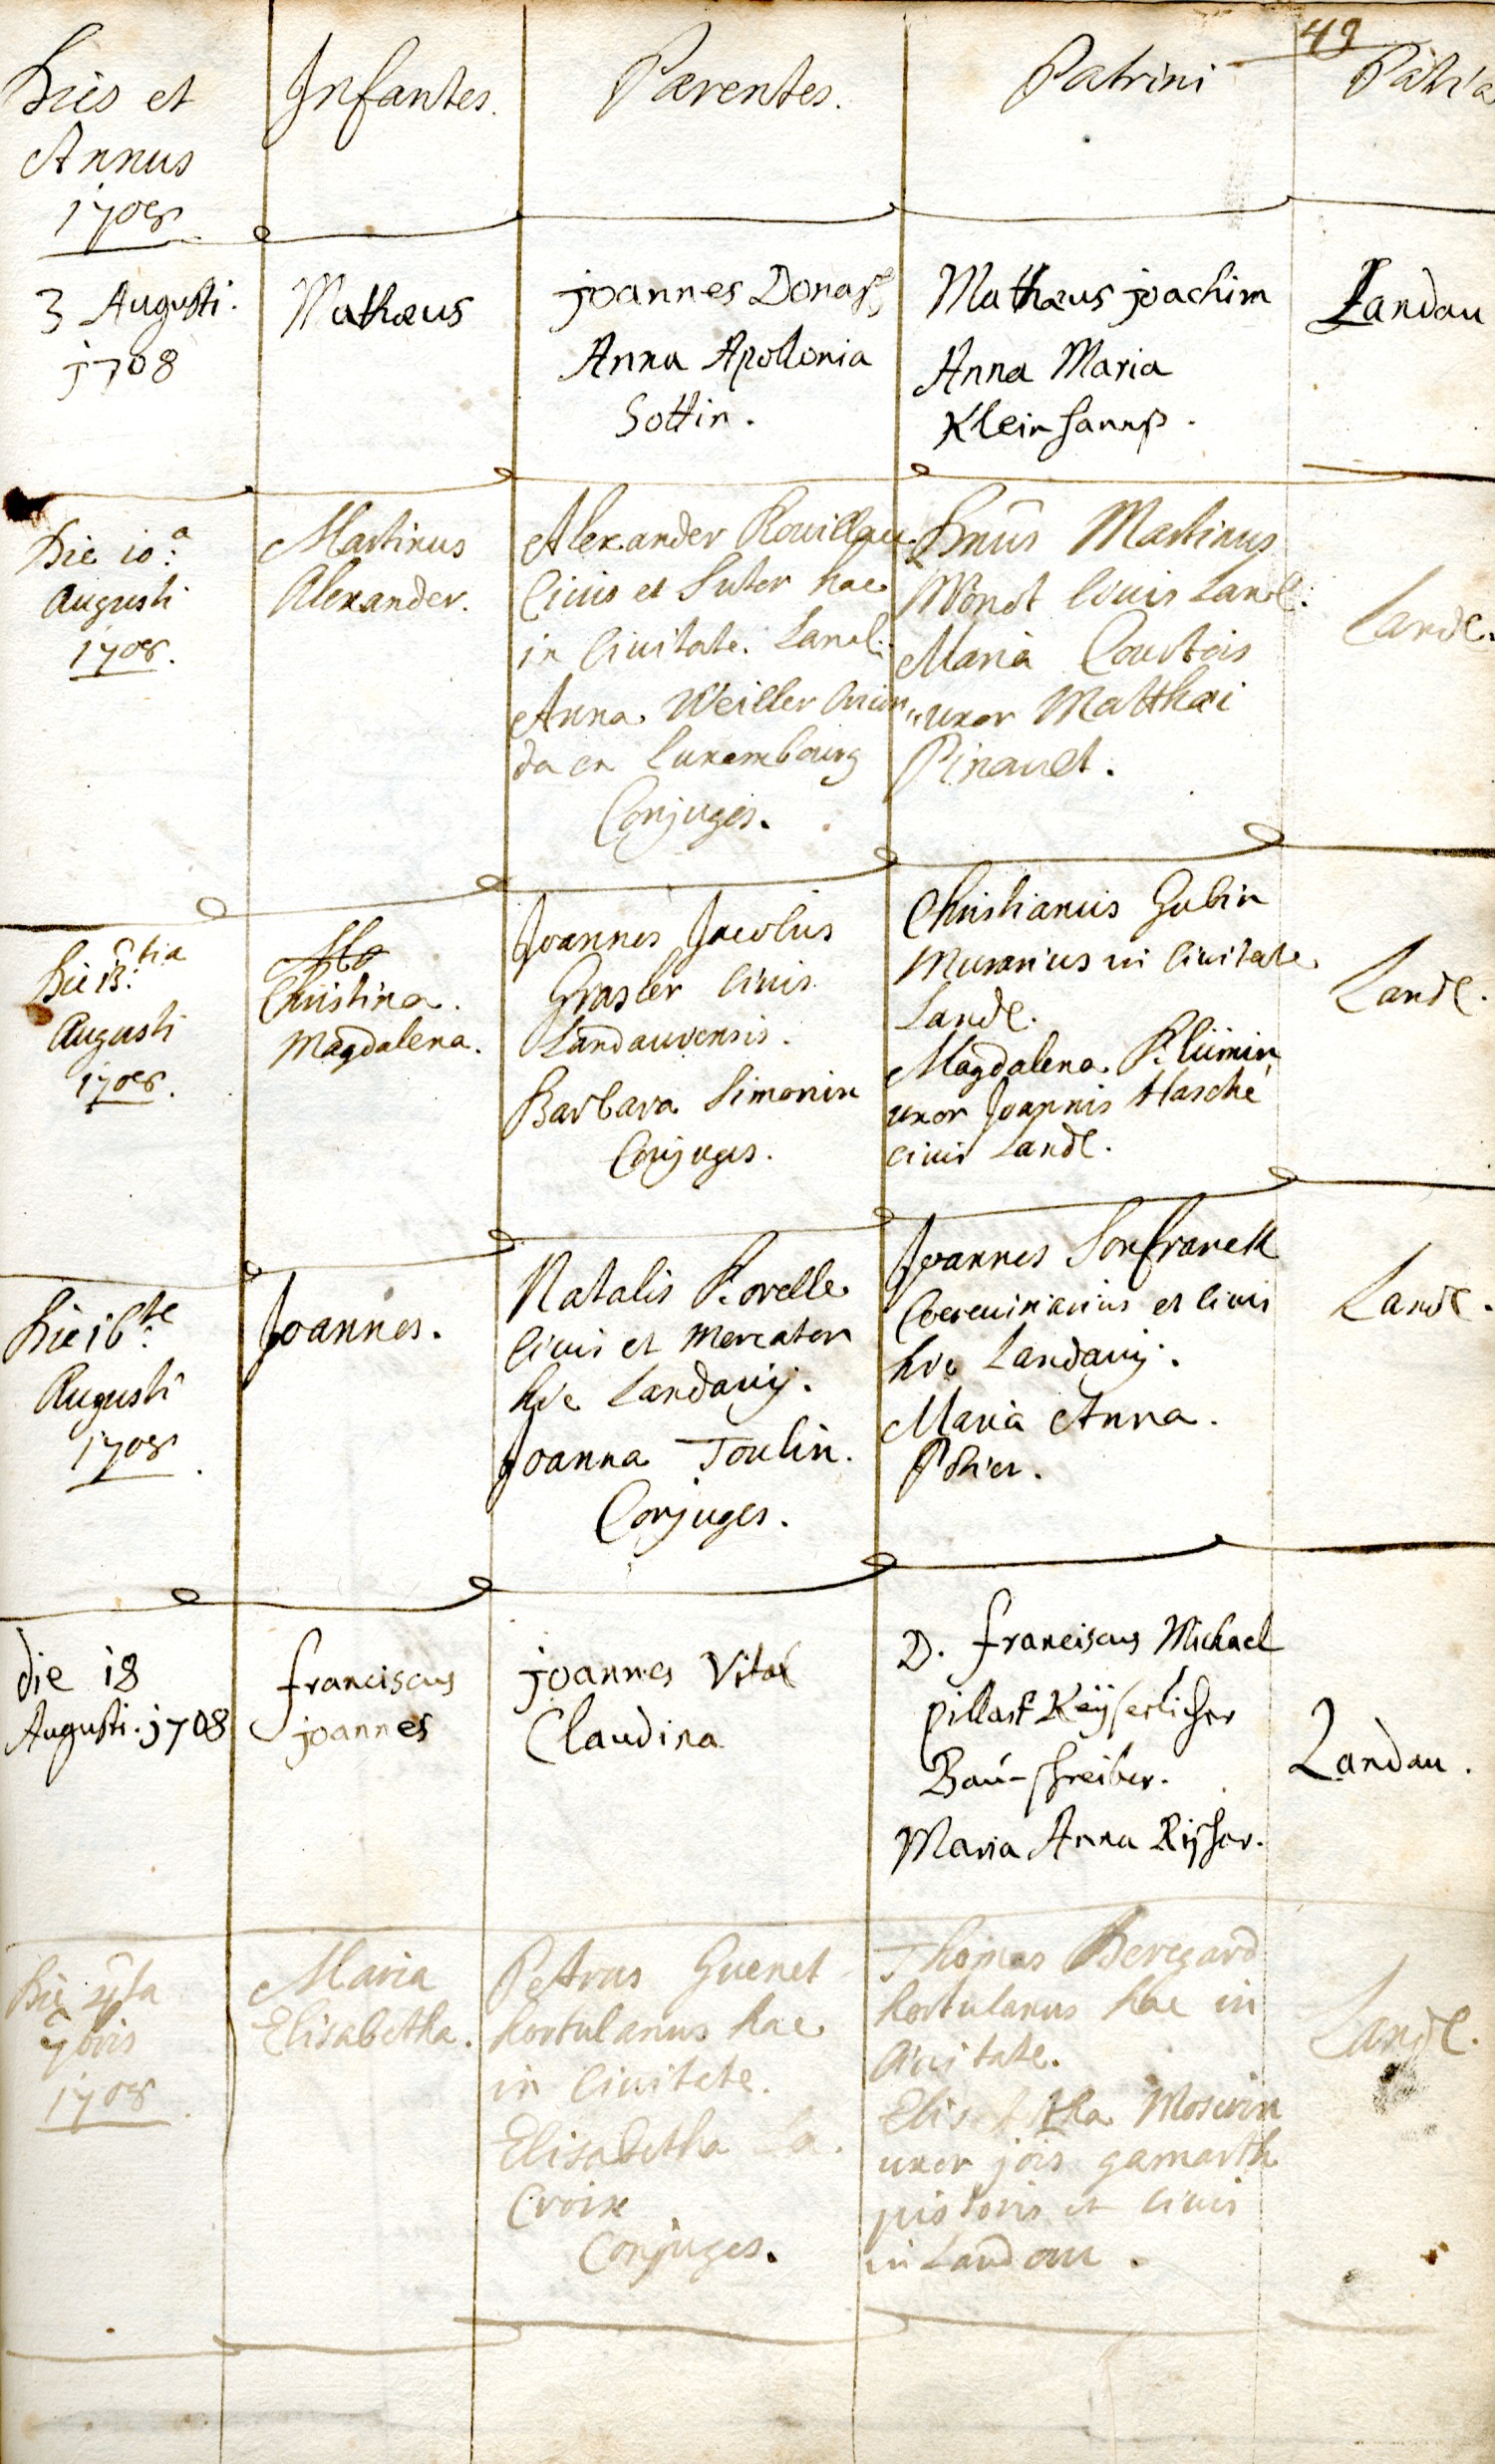 49
Dies et
Annus
1708
Infantes.
Parentes.
Patrini
Patria
3 Augusti.
1708
Mathæus
joannes Donass
Anna Apollonia
Sottin.
Mathæus joachim
Anna Maria
Kleinhanns.
Landau
Die 10.a
Augusti
1708.
Martinus
Alexander.
Alexander Rouillau
Civis et Sutor hac
in Civitate. Land.
Anna Weiller oriun
da ex Luxembourg
Conjuges.
Dnūs Martinus
Monot Civis Land.
Maria Courtois
uxor Matthæi
Pinault.
Land.
Die 13.tia
Augusti
1708.
Christina
Magdalena.
Joannes Jacobus
Grasler Civis
Landauvensis.
Barbara Simonin
Conjuges.
Christianus Gubin
Murarius in Civitate
Land.
Magdalena Plümin
uxor Joannis Hasché
civis Land.
Land.
Die 16.te
Augusti
1708.
Joannes.
Natalis Rovelle
Civis et Mercator
hic Landavij.
Joanna Toulin.
Conjuges.
Joannes Sonfranck
Cerevisiarius et Civis
hic Landavij.
Maria Anna
Potier.
Land.
die 18
Augusti. 1708
franciscus
joannes
joannes Vital
Claudina
D. franciscus Michael
pillast Keÿserlicher
Bau-schreiber.
Maria Anna Rissher.
Landau.
Die
7bris
1708.
Maria
Elisabetha.
Petrus Guenet
hortulanus hac
in Civitate.
Elisabetha La
Croix
Conjuges.
Thomas Beregard
hortulanus hac in
Civitate.
Elisabetha Moserin
uxor jois gamarth
pistoris et Civis
in Landau.
Land.